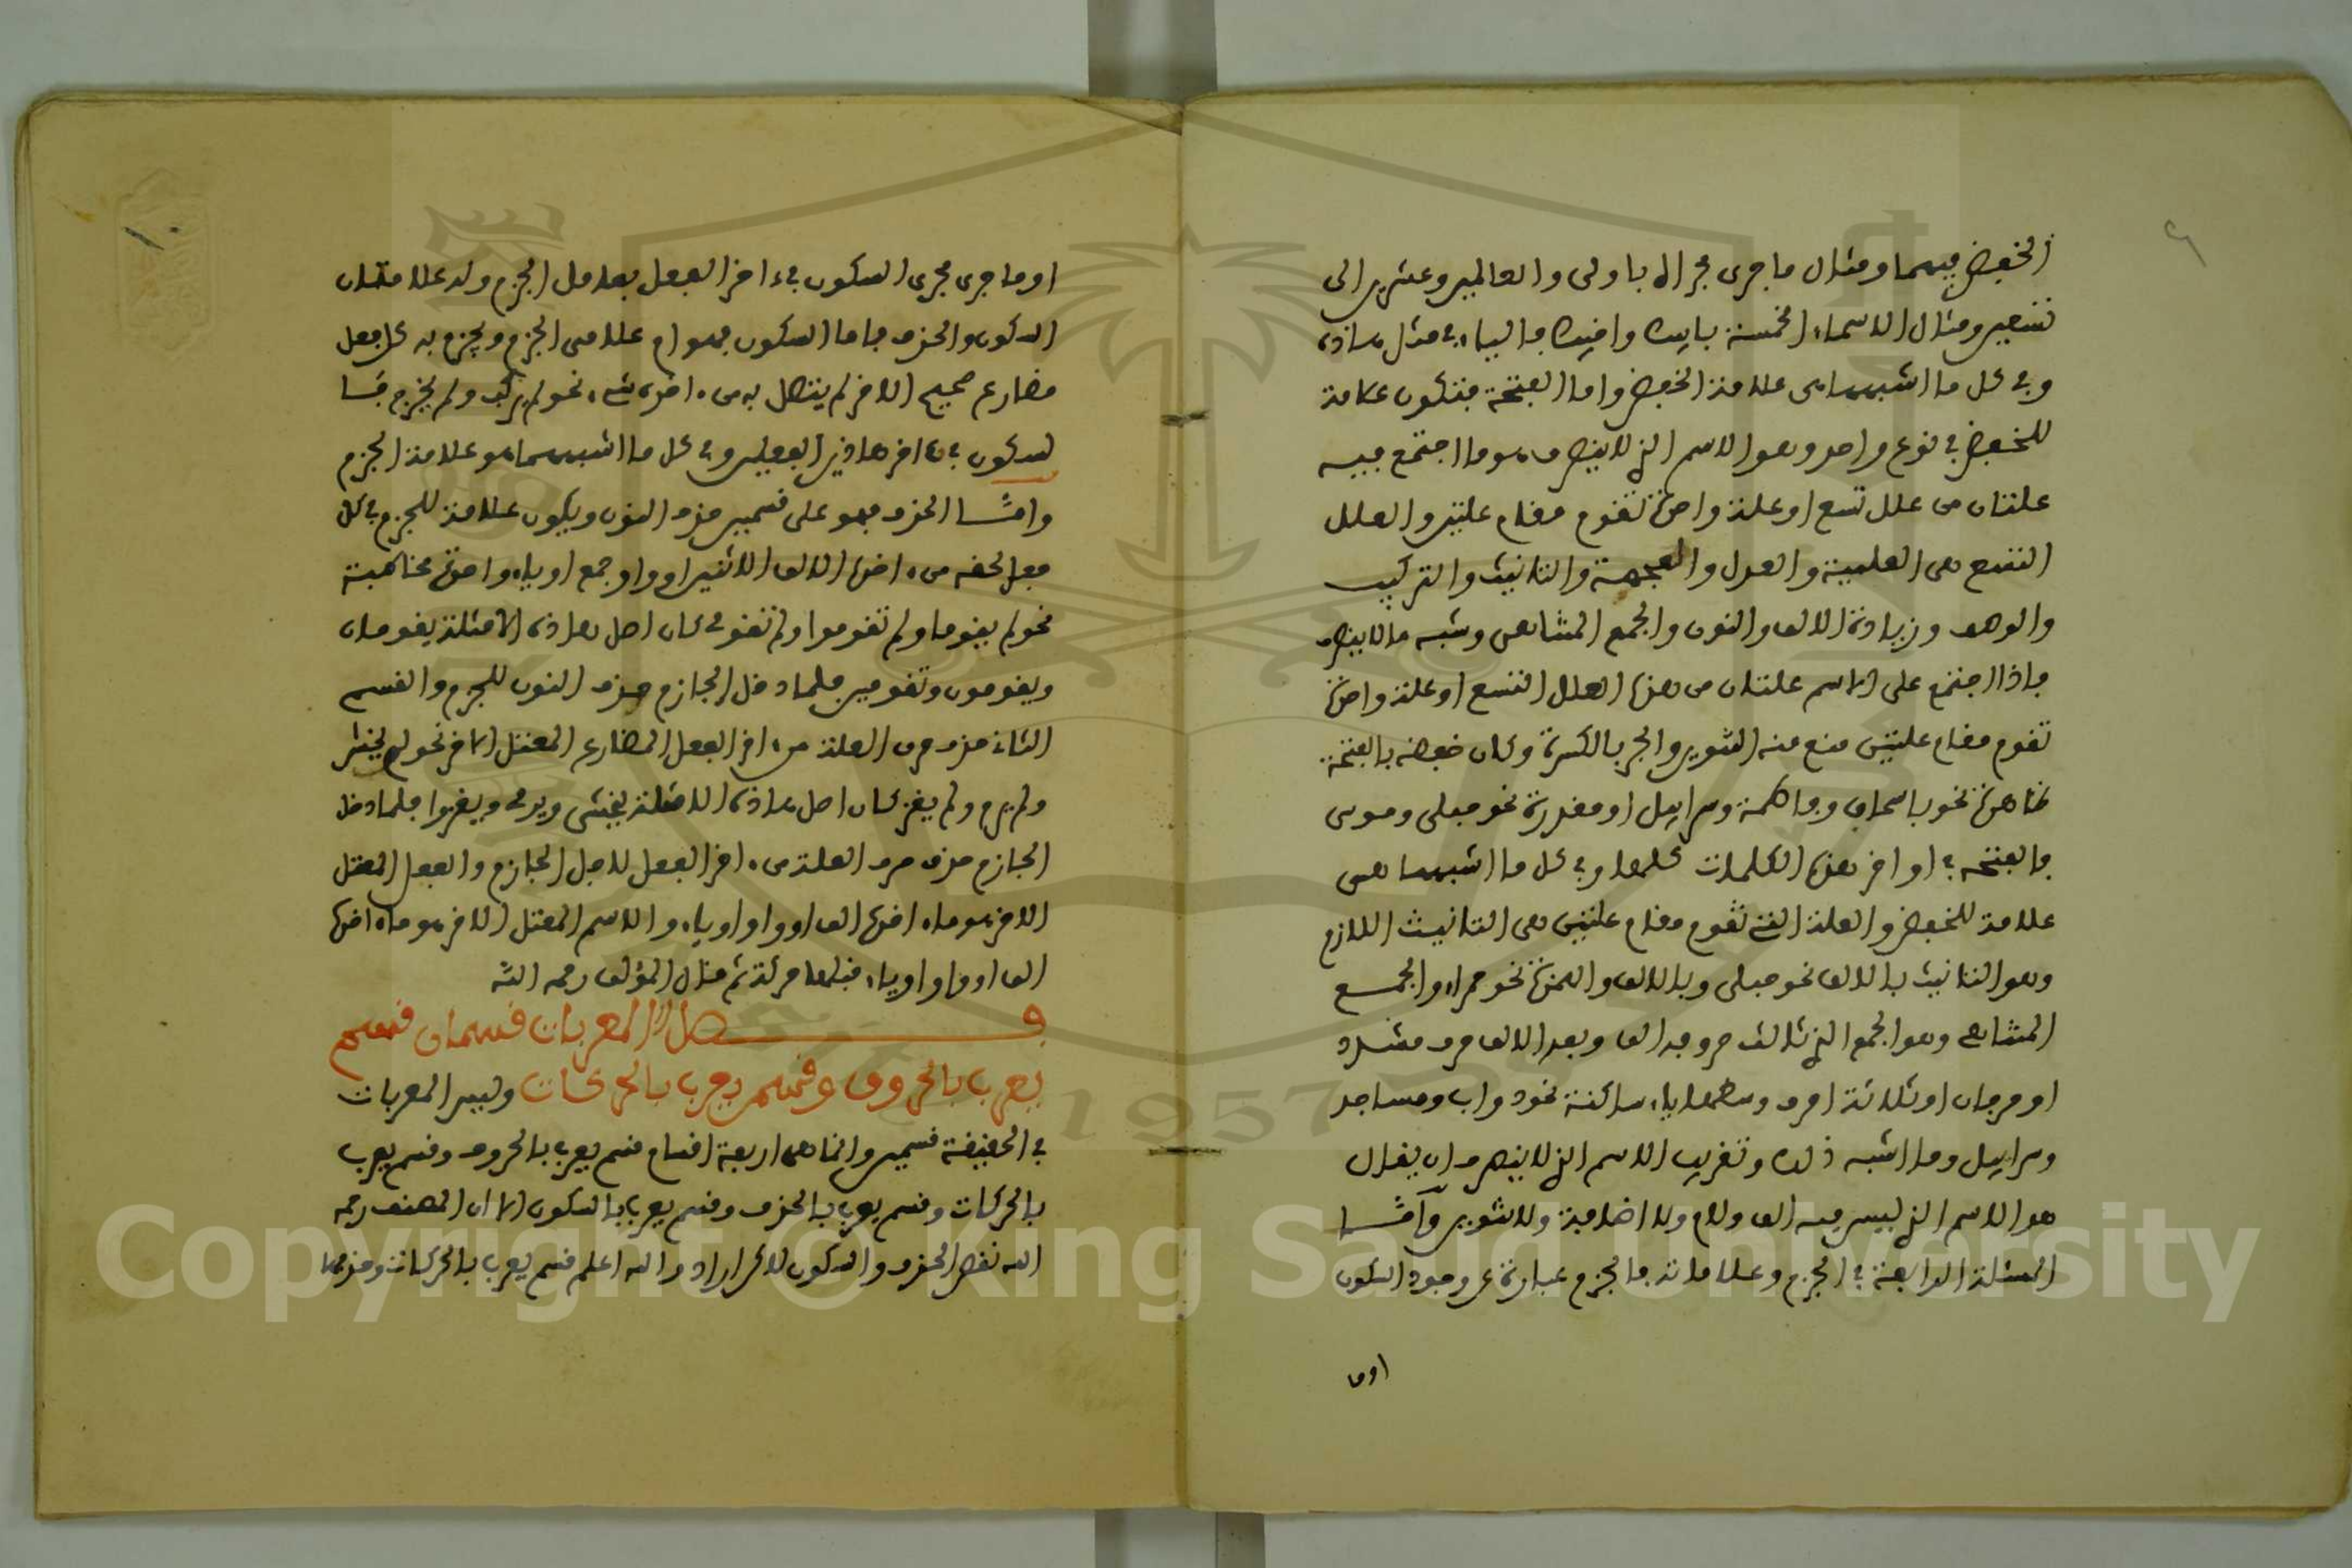 الخفض فيهما ومثال ما جرى مجراه باولى والعالمين وعشرين الى
تسعين ومثال الاسماء الخمسة بابيك واخيك فالياء في مثل هاذه
وفي كل ما اشبهها هي علامة الخفض واما الفتحة فتكون علامة
للخفض في نوع واحد وهو الاسم الذي لا ينصرف وهو ما اجتمع فيه
علتان من علل تسع او علة واحدة تقوم مقام علتين والعلل
التسع هي العلمية والعدل والعجمة والتانيث والتركيب
والوصف وزيادة الالف والنون والجمع المتناهي وشبه ما لا ينصرف
فاذا اجتمع على الاسم علتان من هذه العلل التسع او علة واحدة
تقوم مقام علتين منع منه التنوين والجر بالكسرة وكان خفضه بالفتحة
ظاهرة نحو باسحاق وفاطمة وسرابيل او مقدرة نحو حبلى وموسى
فالفتحة في اواخر هذه الكلمات كلها وفي كل ما اشبهها هي
علامة للخفض والعلة التي تقوم مقام علتين هي التانيث اللازم
وهو التانيث بالالف نحو حبلى وبالالف والهمزة نحو حمراء والجمع
المتناهي وهو الجمع الذي ثالث حروفه الف وبعد الالف حرف مشدد
او حرفان او ثلاثة احرف وسطها ياء ساكنة نحو دواب ومساجد
وسرابيل وما اشبه ذلك وتقريب الاسم الذي لا ينصرف ان يقال
هو الاسم الذي ليس فيه الف ولام ولا اضافة ولا تنوين وأمّا
المسئلة الرابعة في الجزم وعلاماته فالجزم عبارة عن وجود السكون
اوما
١٠
او ما جرى مجرى السكون في ءاخر الفعل بعامل الجزم وله علامتان
السكون والحذف فاما السكون فهو ام علامة الجزم ويجزم به كل فعل
مضارع صحيح الاخر لم يتصل به من ءاخره شيء نحو لم يركب ولم يخرج فا
لسكون في ءاخر هاذين الفعلين وفي كل ما اشبههما هو علامة الجزم
وامّا الحذف فهو على قسمين حذف النون ويكون علامة للجزم في كل
فعل لحقه من ءاخره الالف الاثنين او واو جمع او ياء واحدة مخاطبة
نحو لم يقوما ولم تقوموا ولم تقومي كان اصل هاذه الامثلة يقومان
ويقومون وتقومين فلما دخل الجازم حذف النون للجزم والقسم
الثاني حذف حرف العلة من ءاخر الفعل المضارع المعتل الاخر نحو لم يخش
ولم يرم ولم يغز كان اصل هاذه الامثلة يخشى ويرمي ويغزوا فلما دخل
الجازم حذف حرف العلة من ءاخر الفعل لاجل الجازم والفعل المعتل
الاخر هو ما ءاخره الف او واو او ياء والاسم المعتل الاخر هو ما ءاخره
الف او واو او ياء قبلها حركة ثم قال المؤلف رحمه الله
فصل المعربات قسمان قسم
يعرب بالحروف وقسم يعرب بالحركات وليس المعربات
في الحقيقة قسمين وانما هي اربعة اقسام قسم يعرب بالحروف وقسم يعرب
بالحركات وقسم يعرب بالحذف وقسم يعرب بالسكون الا ان المصنف رحمه
الله نقص الحذف والسكون اراد والله اعلم قسم يعرب بالحركات وحذفها
Copyright © King Saud University
1957